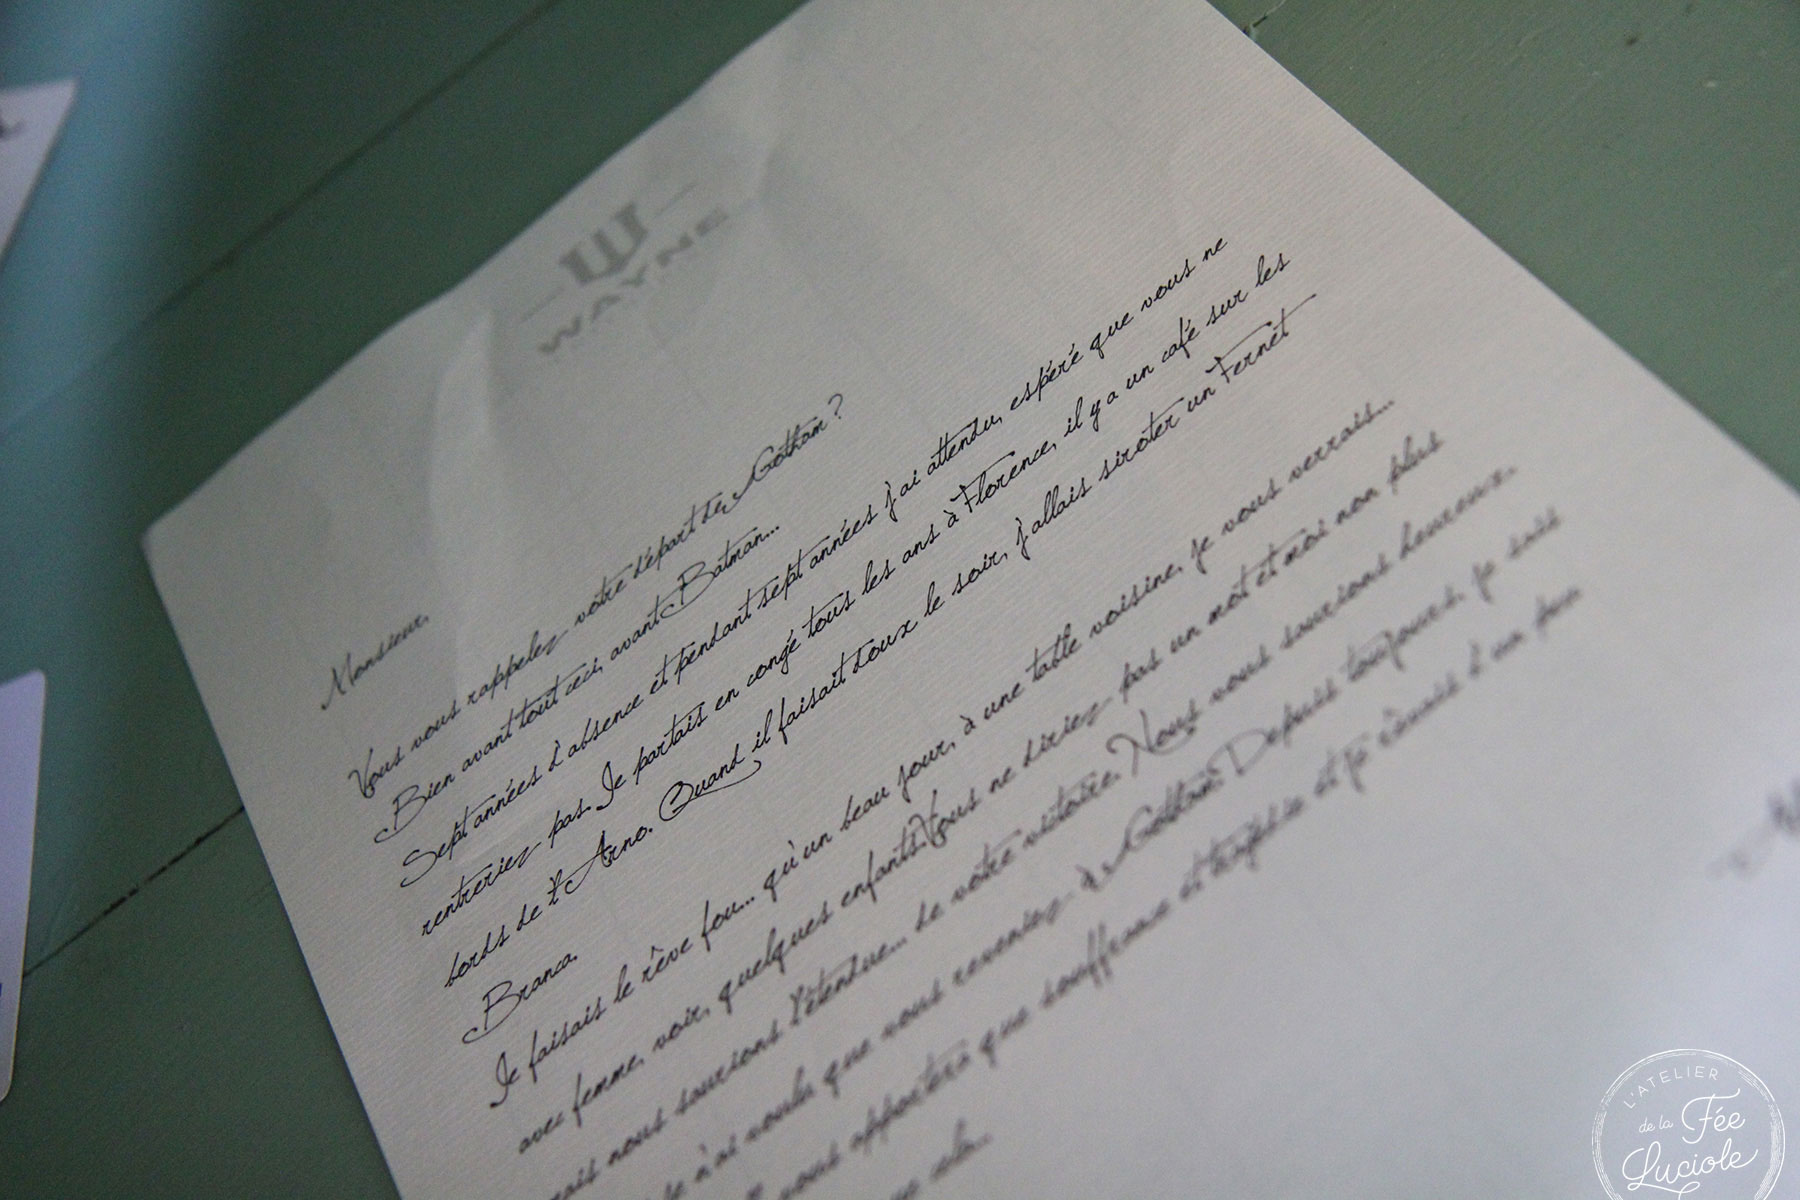 W
WAYNE
Monsieur,
Vous vous rappelez votre départ de Gotham ?
Bien avant tout ceci, avant Batman...
Sept années d'absence et pendant sept années j'ai attendu, espéré que vous ne
rentreriez pas. Je partais en congé tous les ans à Florence, il y a un café sur les
bords de l'Arno. Quand il faisait doux le soir, j'allais siroter un Fernet
Branca.
Je faisais le rêve fou... qu'un beau jour, à une table voisine, je vous verrais...
avec femme, voir, quelques enfants. Vous ne diriez pas un mot et moi non plus
mais nous sourions l'étendue... de votre victoire. Nous vous sourions heureux.
Je n'ai voulu que vous reveniez à Gotham. Depuis toujours, je sais
vous apportera que souffrance et tragédie et je
L'ATELIER
de la Fée
Luciole